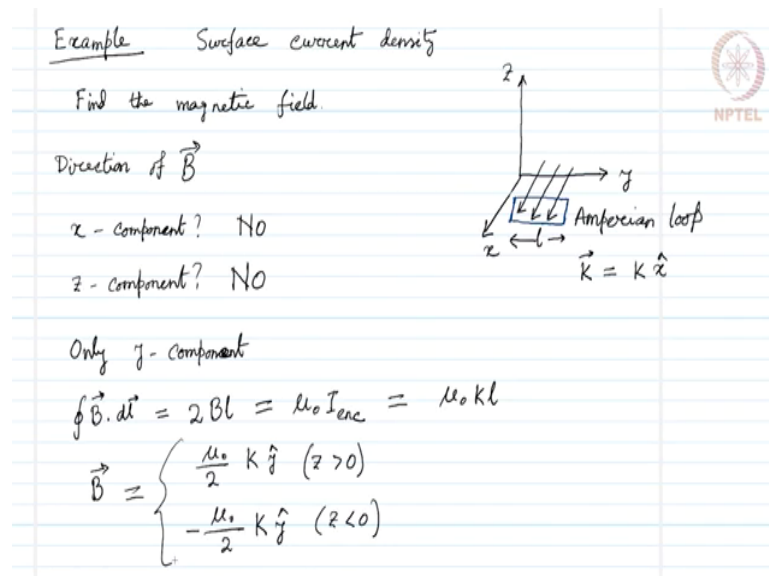 Example Surface current density
Find the magnetic field.
Direction of B⃗
x - component? No
z - component? No
Only y - component
∮B⃗.dl⃗ = 2Bl = μ₀ I_enc = μ₀Kl
B⃗ = { μ₀/2 K ŷ (z>0)
-μ₀/2 K ŷ (z<0)
z
NPTEL
y
Amperian loop
x
l
K⃗ = K x̂